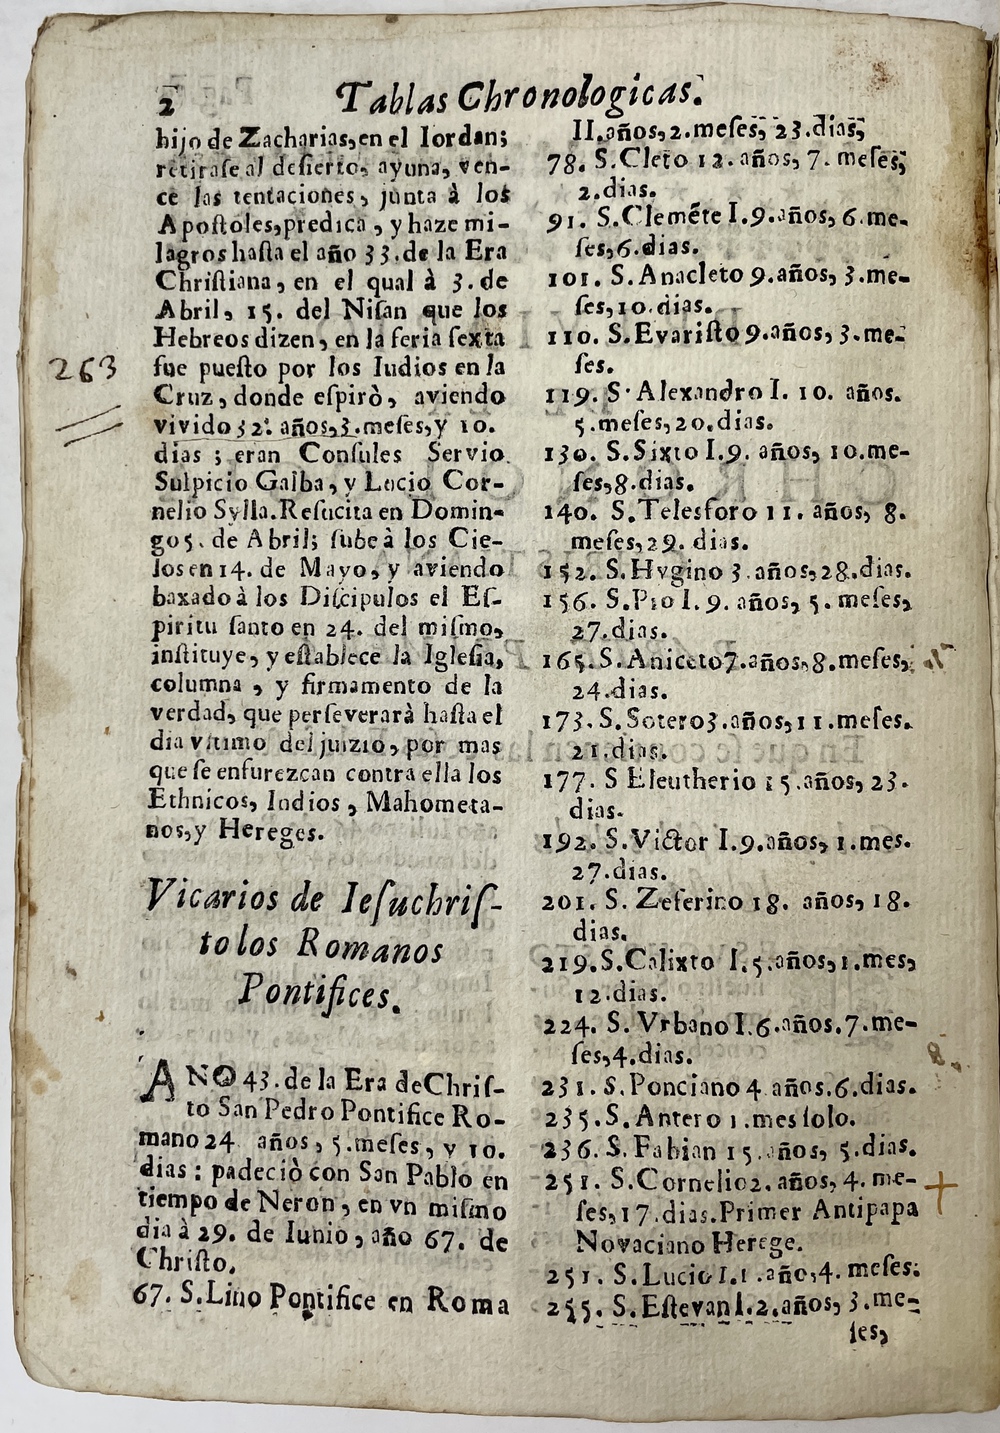 2
Tablas Chronologicas.
hijo de Zacharias, en el Iordan;
retirase al desierto, ayuna, ven-
ce las tentaciones, junta à los
Apoſtoles, predica, y haze mi-
lagros haſta el año 33. de la Era
Chriſtiana, en el qual à 3. de
Abril, 15. del Niſan que los
Hebreos dizen, en la feria ſexta
fue pueſto por los Iudios en la
Cruz, donde eſpirò, aviendo
vivido 32. años, 3. meſes, y 10.
dias; eran Conſules Servio
Sulpicio Galba, y Lucio Cor-
nelio Sylla. Reſucita en Domin-
go 5. de Abril; ſube à los Cie-
los en 14. de Mayo, y aviendo
baxado à los Diſcipulos el Eſ-
piritu ſanto en 24. del miſmo,
inſtituye, y eſtablece la Igleſia,
columna, y firmamento de la
verdad, que perſeverarà haſta el
dia vltimo del juizio, por mas
que ſe enfurezcan contra ella los
Ethnicos, Iudios, Mahometa-
nos, y Hereges.
263
Vicarios de Ieſuchriſ-
to los Romanos
Pontifices.
AÑO 43. de la Era de Chriſ-
to San Pedro Pontifice Ro-
mano 24 años, 5. meſes, y 10.
dias: padeciò con San Pablo en
tiempo de Neron, en vn miſmo
dia à 29. de Iunio, año 67. de
Chriſto.
67. S. Lino Pontifice en Roma
II. años, 2. meſes, 23. dias,
78. S. Cleto 12. años, 7. meſes,
2. dias.
91. S. Clemẽte I. 9. años, 6. me-
ſes, 6. dias.
101. S. Anacleto 9. años, 3. me-
ſes, 10. dias.
110. S. Evariſto 9. años, 3. me-
ſes.
119. S. Alexandro I. 10. años.
5. meſes, 20. dias.
130. S. Sixto I. 9. años, 10. me-
ſes, 8. dias.
140. S. Telesforo 11. años, 8.
meſes, 29. dias.
152. S. Hygino 3. años, 28. dias.
156. S. Pio I. 9. años, 5. meſes,
27. dias.
165. S. Aniceto 7. años, 8. meſes,
24. dias.
173. S. Sotero 3. años, 11. meſes.
21. dias.
177. S Eleutherio 15. años, 23.
dias.
192. S. Victor I. 9. años, 1. mes.
27. dias.
201. S. Zeferino 18. años, 18.
dias.
219. S. Calixto I. 5. años, 1. mes,
12. dias.
224. S. Vrbano I. 6. años. 7. me-
ſes, 4. dias.
231. S. Ponciano 4 años. 6. dias.
235. S. Antero 1. mes ſolo.
236. S. Fabian 15. años, 5. dias.
251. S. Cornelio 2. años, 4. me-
ſes, 17. dias. Primer Antipapa
Novaciano Herege.
251. S. Lucio I. 1. año, 4. meſes.
255. S. Eſtevan I. 2. años, 3. me-
ſes,